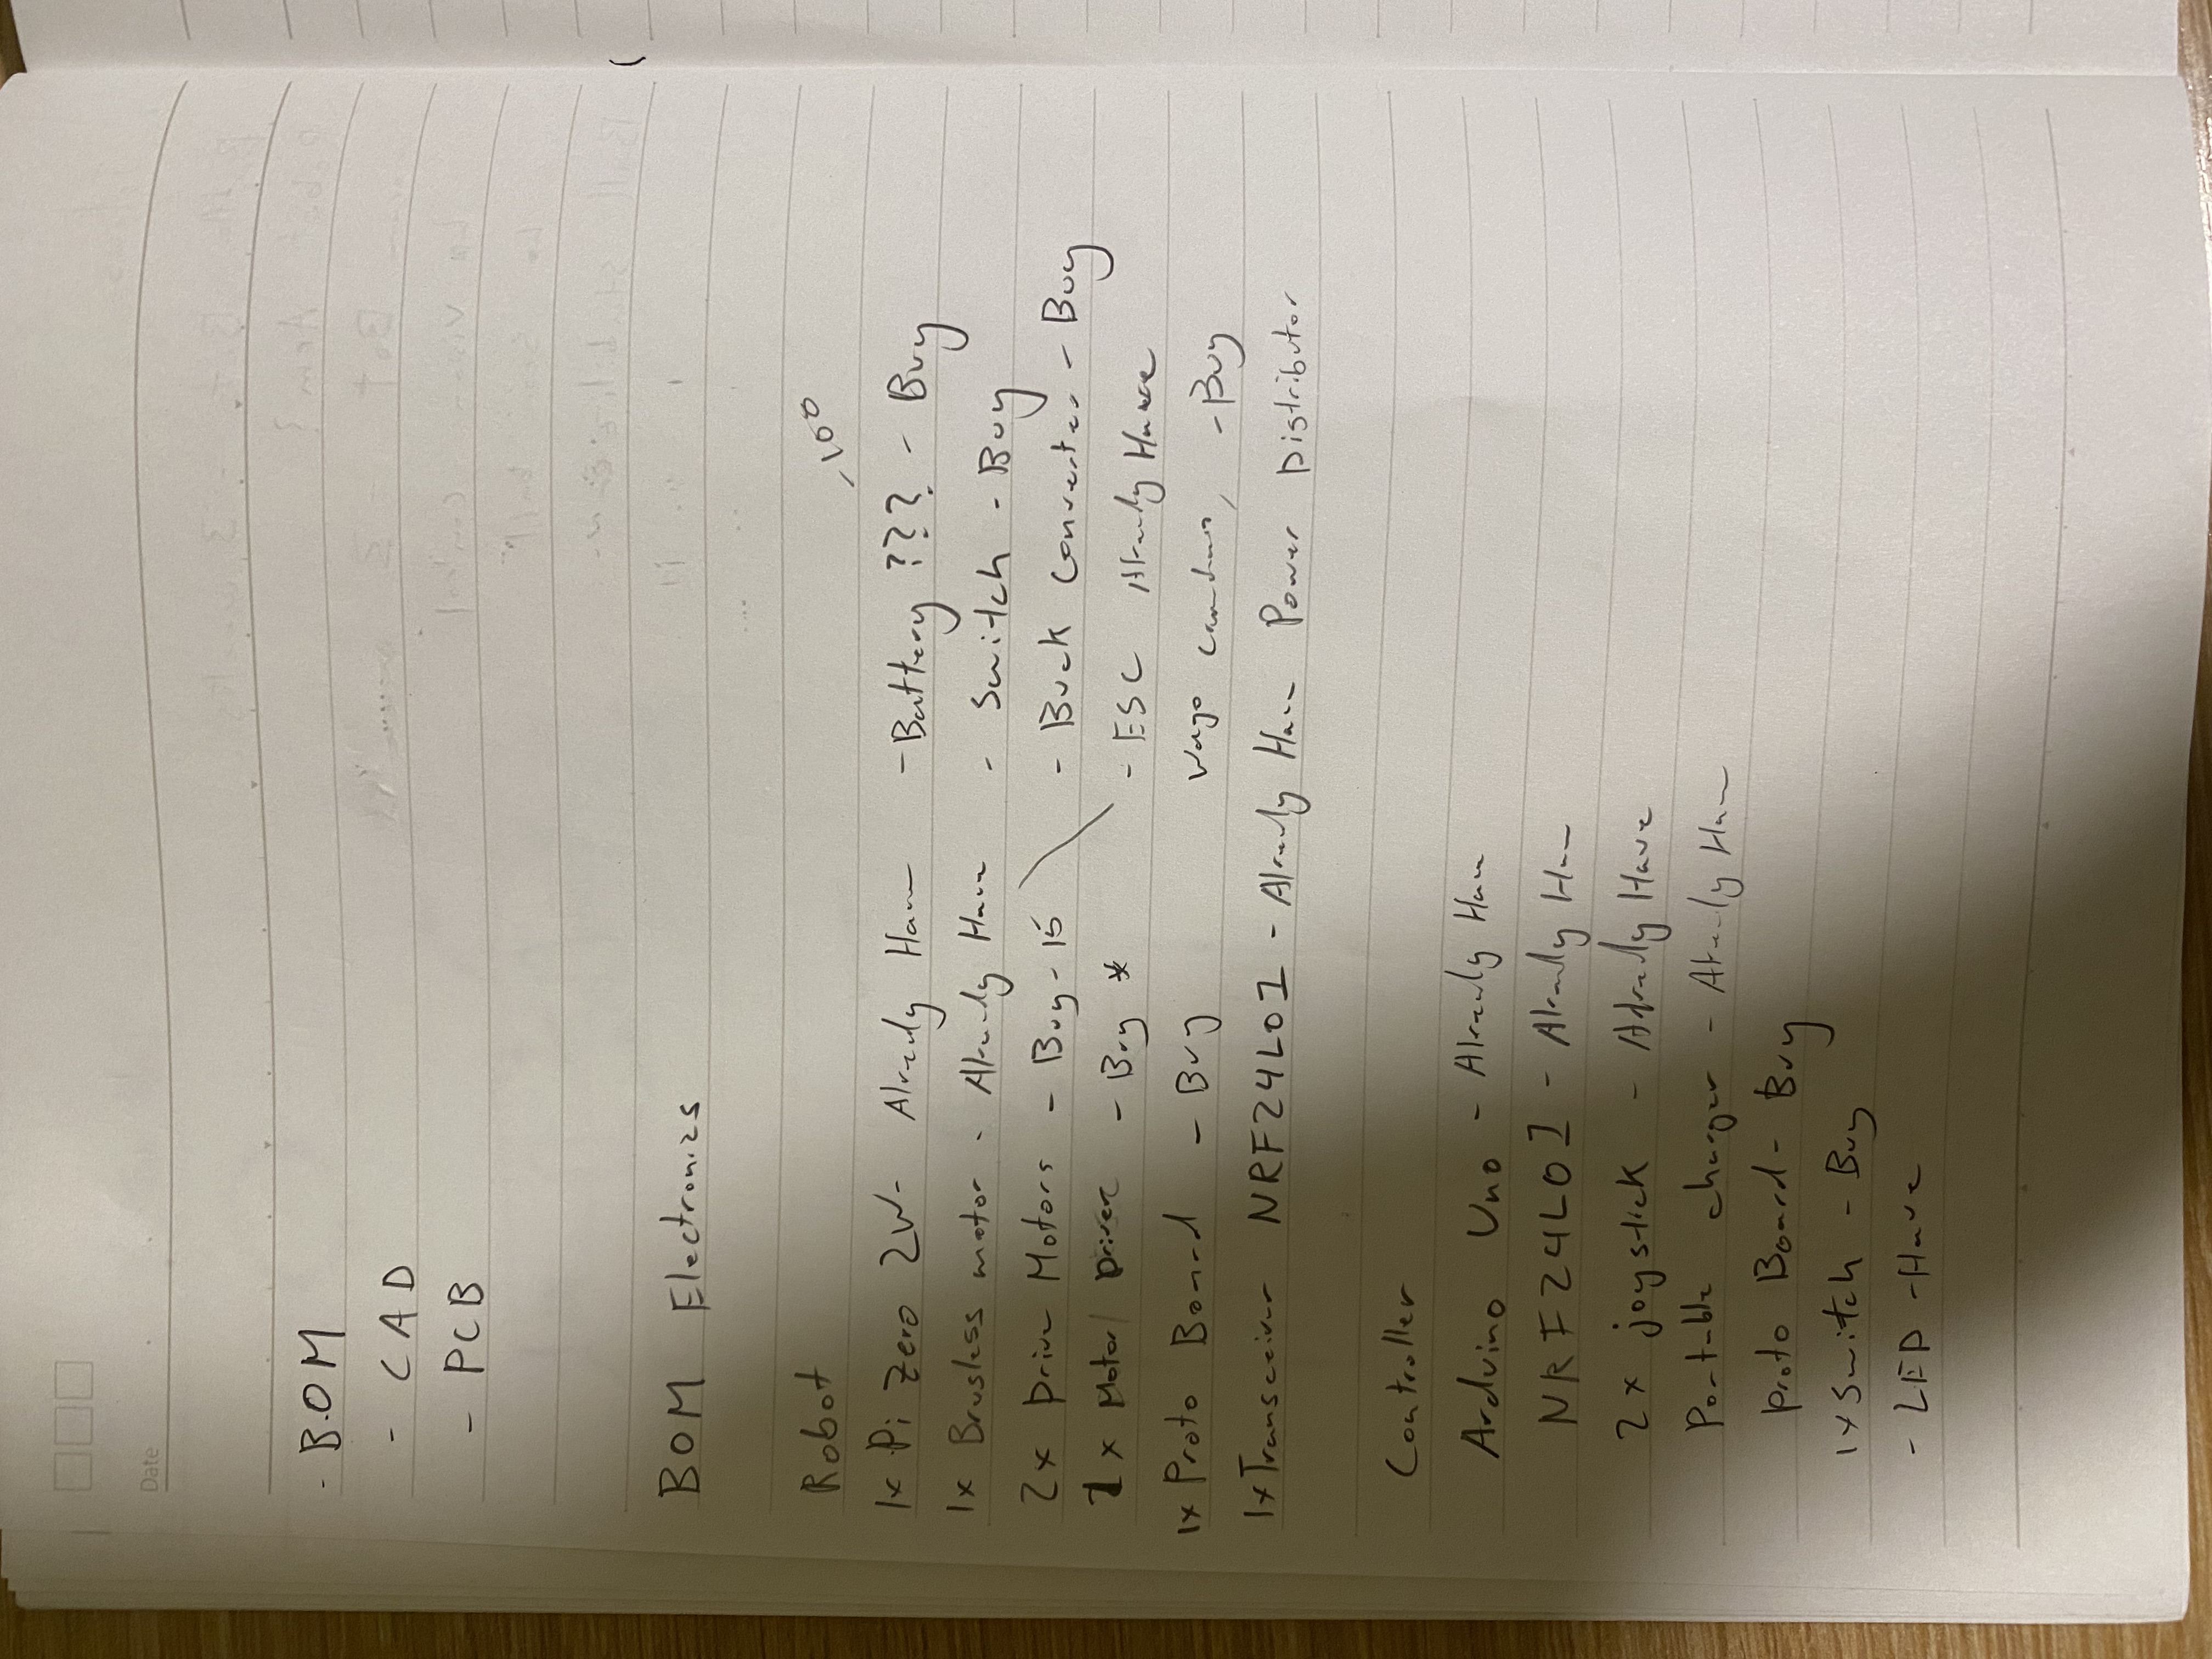 Date
- B.O.M
- CAD
- PCB
BOM Electronics
Robot
100
1x Pi Zero 2W - Already Have - Battery ??? - Buy
1x Brusless motor - Already Have - Switch - Buy
2x Drive Motors - Buy - 15 - Buck Converter - Buy
1x Motor Driver - Buy * - ESC Already Have
1x Proto Board - Buy Wago - Buy
1x Transceiver NRF24L01 - Already Have Power Distributor
Controller
Arduino Uno - Already Have
NRF24L01 - Already Have
2x joystick - Already Have
Portable charger - Already Have
Proto Board - Buy
1x Switch - Buy
- LED - Have